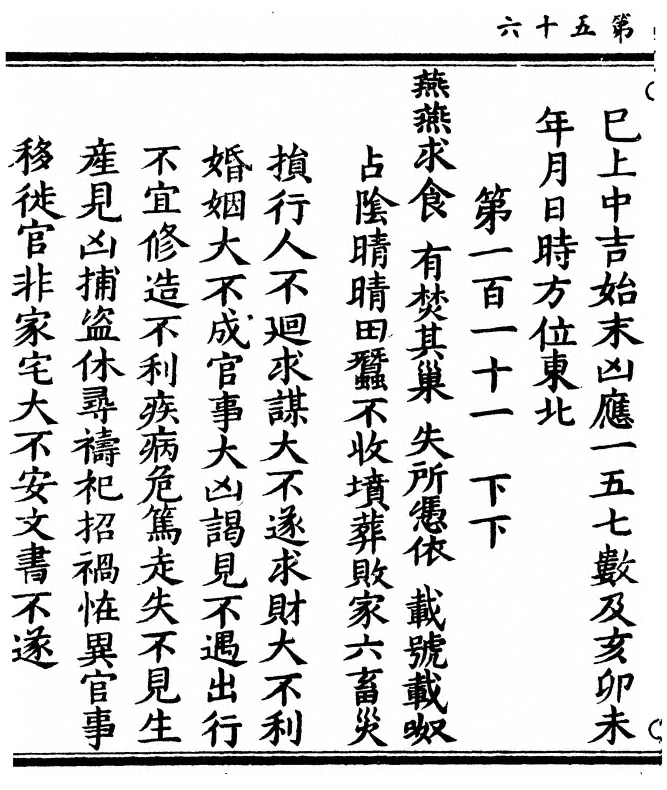 第五十六
已上中吉始末凶應一五七數及亥卯未
年月日時方位東北
第一百一十一 下下
燕燕求食 有焚其巢 失所憑依 載號載呶
占陰晴晴田蠶不收墳葬敗家六畜災
損行人不迴求謀大不遂求財大不利
婚姻大不成官事大凶謁見不遇出行
不宜修造不利疾病危篤走失不見生
產見凶捕盜休尋禱祀招禍恠異官事
移徙官非家宅大不安文書不遂